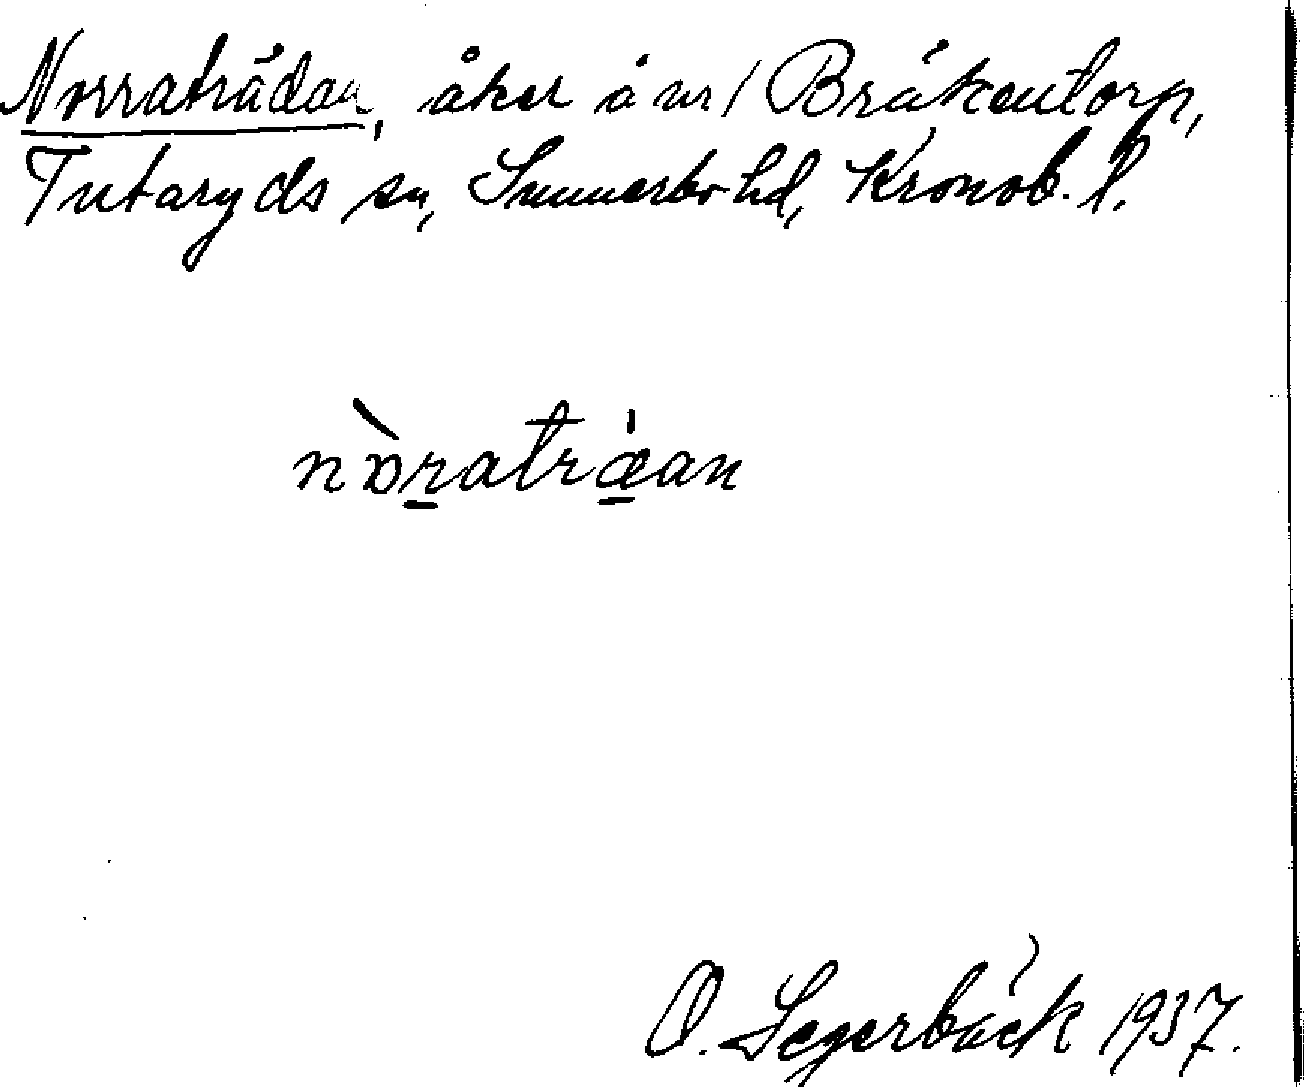 Norraträdan, åker å nr 1 Bråkentorp,
Tutaryds sn, Sunnerbo hd, Kronob. l.
nòratræan
O. Segerbäck 1937.